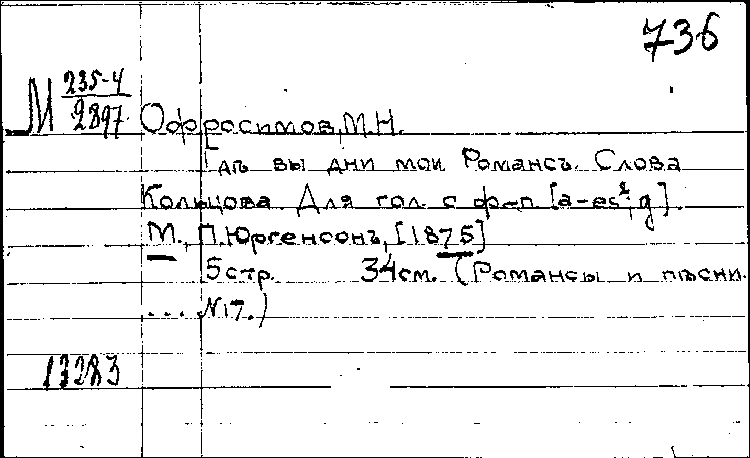 736
М 235-4
2897
Офросимов, М.Н.
Гдѣ вы дни мои. Романсъ. Слова
Кольцова. Для гол. с ф-п. [a-es²; g].
М., П. Юргенсонъ, [1875]
5 стр. 34 см. (Романсы и пѣсни.
... №17.)
13283